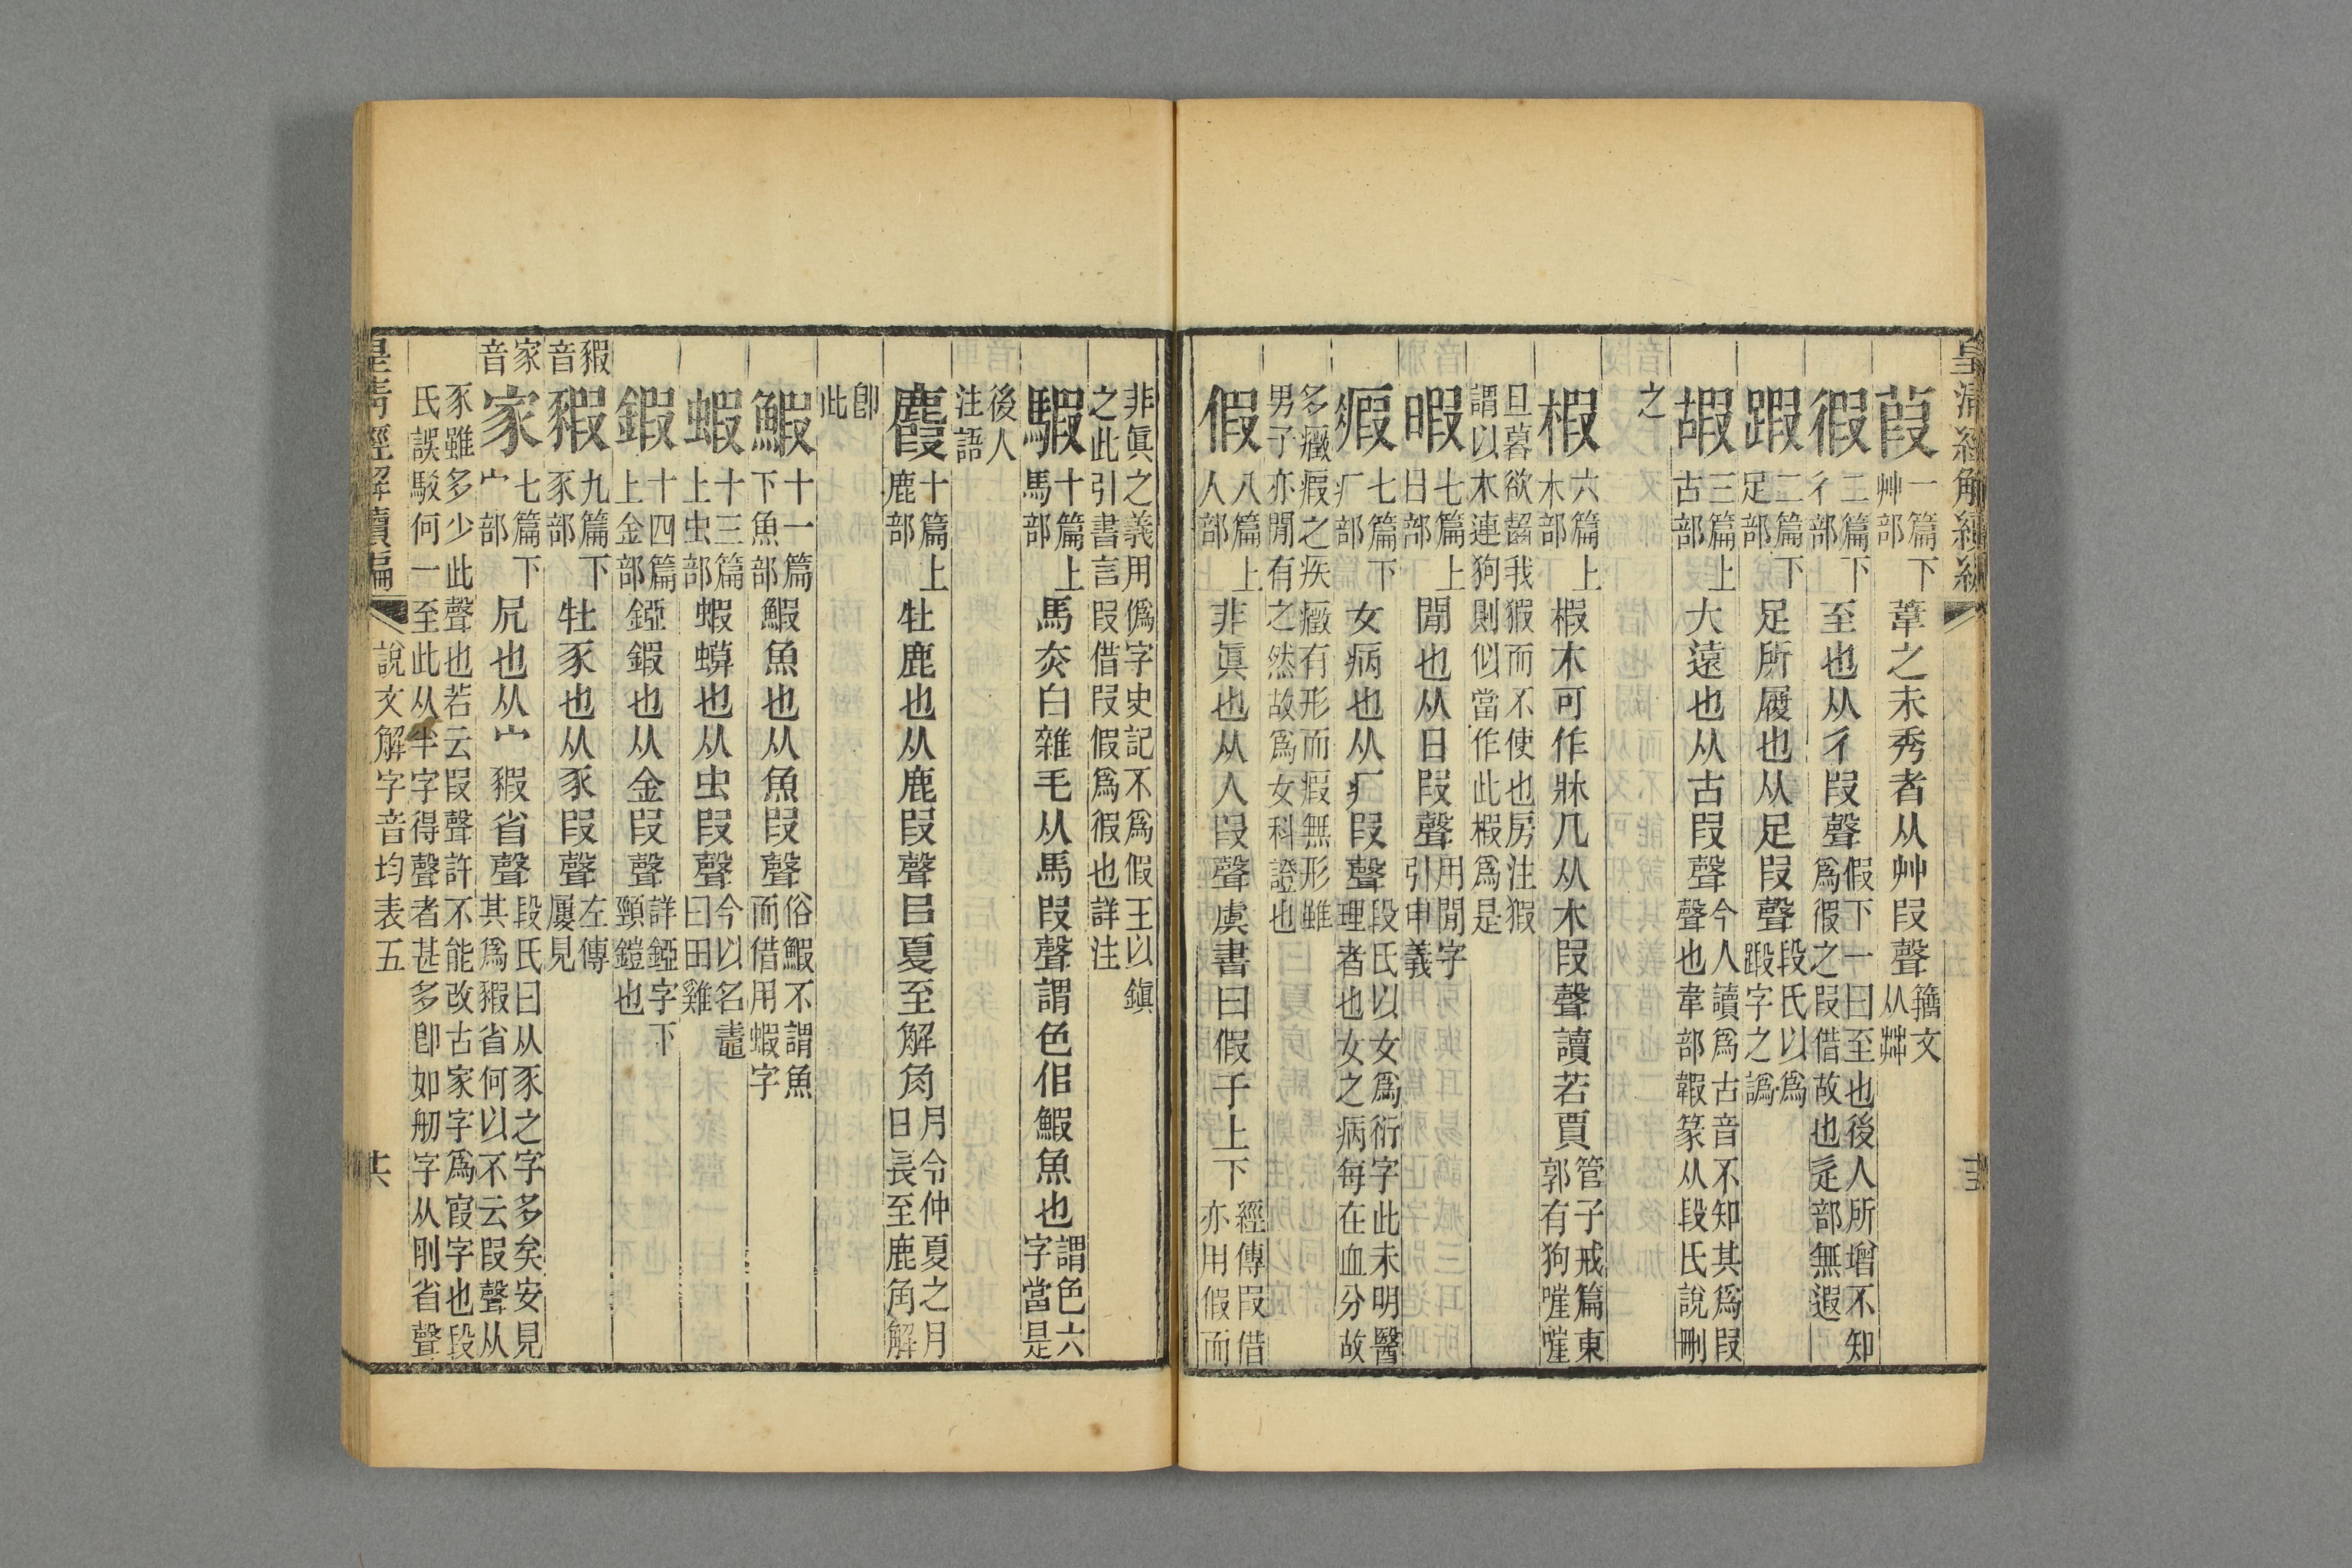 皇清經解續編
葭一篇下艸部葦之未秀者从艸叚聲籀文从茻
徦二篇下彳部至也从彳叚聲假下一曰至也後人所增不知爲徦之叚借故也辵部無遐
二篇下足部足所履也从足叚聲段氏以爲字之譌
嘏三篇上古部大遠也从古叚聲今人讀爲古音不知其爲叚聲也韋部䪗篆从段氏說刪
之
椵六篇上木部椵木可作牀几从木叚聲讀若賈管子戒篇東郭有狗嘊嘊
旦暮欲齧我猳而不使也房注猳謂以木連狗則似當作此椵爲是
暇七篇上日部閒也从日叚聲用閒字引申義
瘕七篇下疒部女病也从疒叚聲段氏以女爲衍字此未明醫理者也女之病每在血分故
多癥瘕之疾癥有形而瘕無形雖男子亦閒有之然故爲女科證也
假八篇上人部非眞也从人叚聲虞書曰假于上下經傳叚借亦用假而
非眞之義用僞字史記不爲假王以鎭之此引書言叚借叚假爲徦也詳注
騢十篇上馬部馬赤白雜毛从馬叚聲謂色佀鰕魚也謂色六字當是
後人注語
麚十篇上鹿部牡鹿也从鹿叚聲㠯夏至解角月令仲夏之月日長至鹿角解
卽此
鰕十一篇下魚部鰕魚也从魚叚聲俗鰕不謂魚而借用蝦字
蝦十三篇上虫部蝦蟆也从虫叚聲今以名鼃曰田雞
鍜十四篇上金部錏鍜也从金叚聲詳錏字下頸鎧也
豭音豭九篇下豕部牡豕也从豕叚聲左傳屢見
家音家七篇下宀部凥也从宀豭省聲段氏曰从豕之字多矣安見其爲豭省何以不云叚聲从
豕雖多少此聲也若云叚聲許不能改古家字爲宧字也段氏誤駁何一至此从半字得聲者甚多卽如刱字从刖省聲
皇清經解續編 說文解字音均表五 共